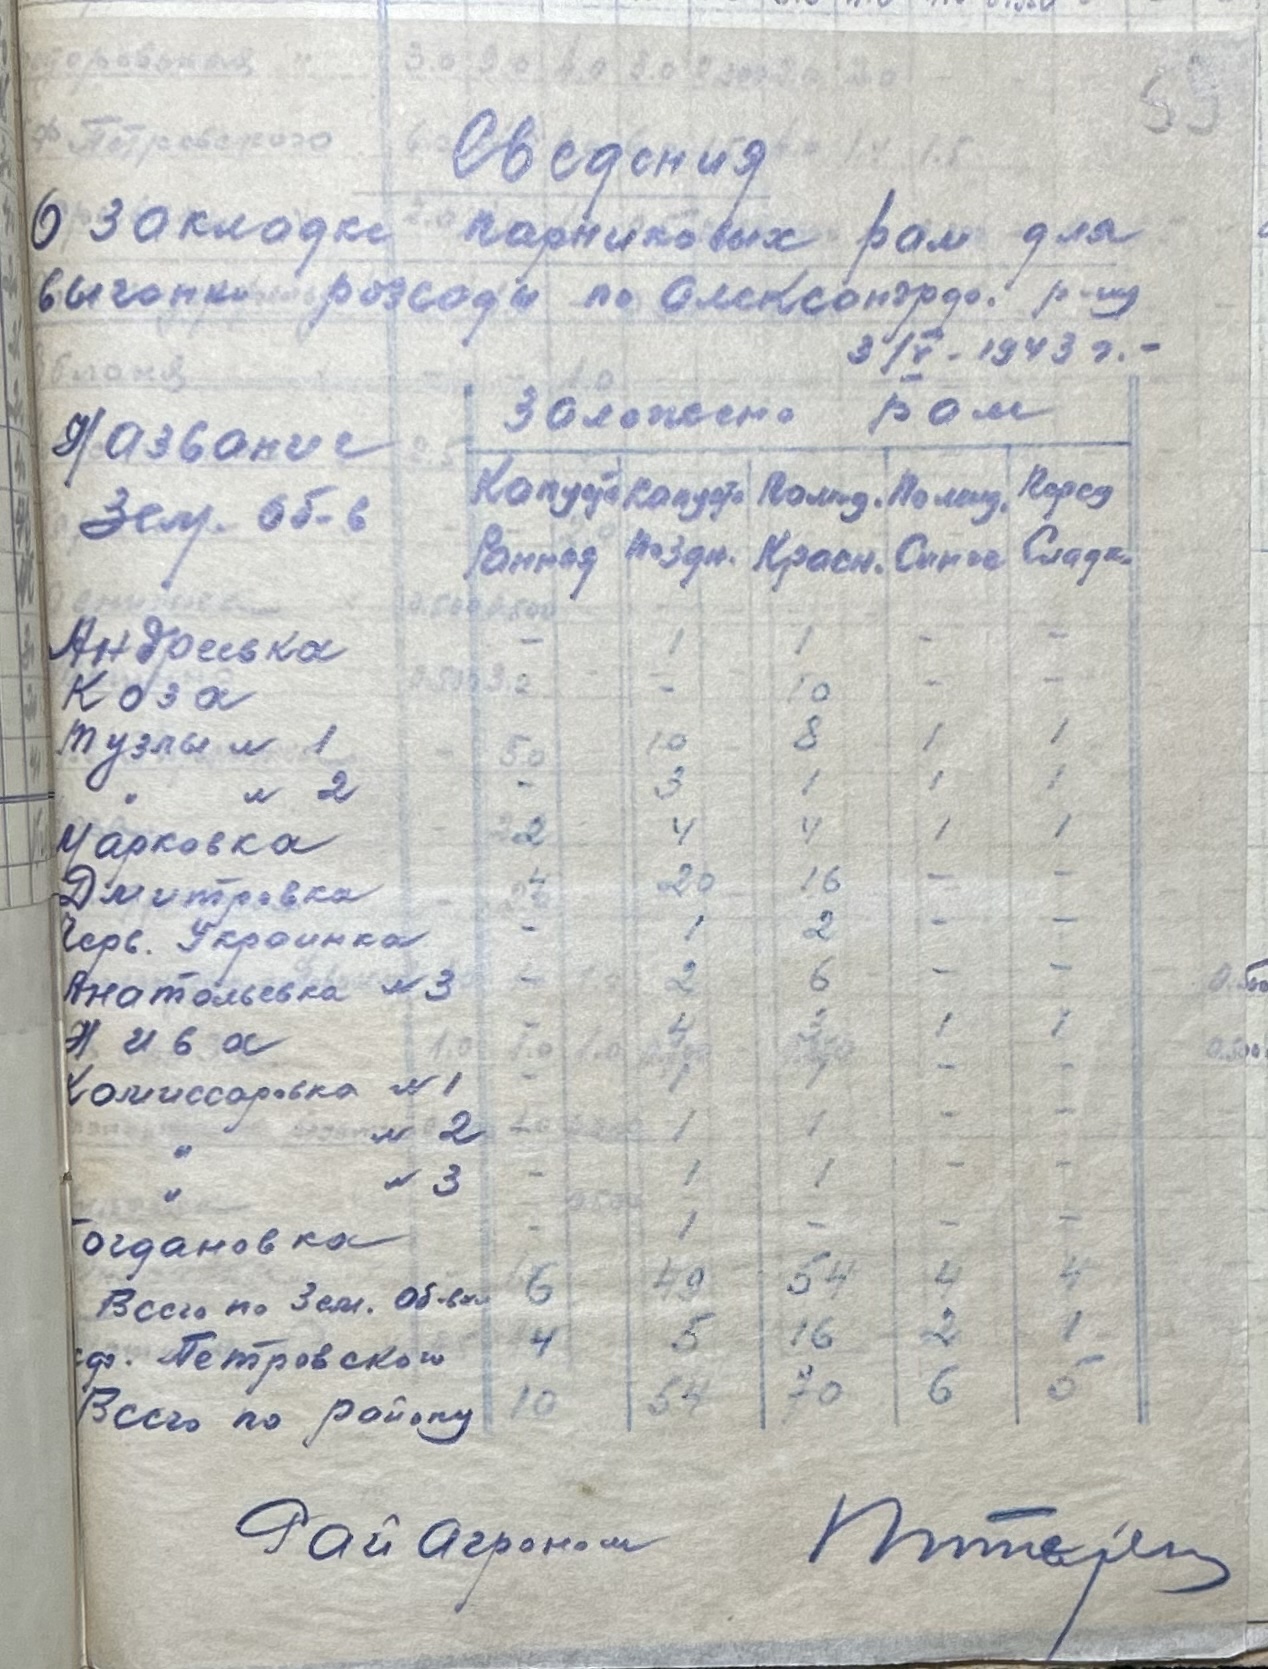 59
Сведения
О закладке парниковых рам для
выгонки розсады по Александрдо. р-ну
3/IV - 1943 г. -
Название Зем. Об-в
Заложено рам
Капуста Ранняя
Капуста Поздн.
Помид. Красн.
Помид. Синие
Перец Сладк.
Андреевка - 1 1 - -
Коза - - 10 - -
Тузлы № 1 - 10 8 1 1
" № 2 - 3 1 1 1
Марковка 2 4 4 1 1
Дмитровка 4 20 16 - -
Черв. Украинка - 1 2 - -
Анатольевка № 3 - 2 6 - -
Нива - 4 3 1 1
Комиссаровка № 1 - 1 1 - -
" № 2 - 1 1 - -
" № 3 - 1 1 - -
Богдановка - 1 - - -
Всего по Зем. Об-вам 6 49 54 4 4
сф. Петровского 4 5 16 2 1
Всего по району 10 54 70 6 5
Рай Агроном